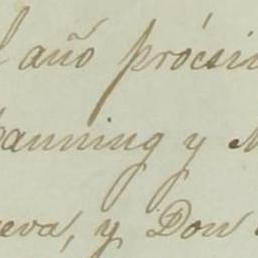 l año prócsi
anning y M
eva, y Don